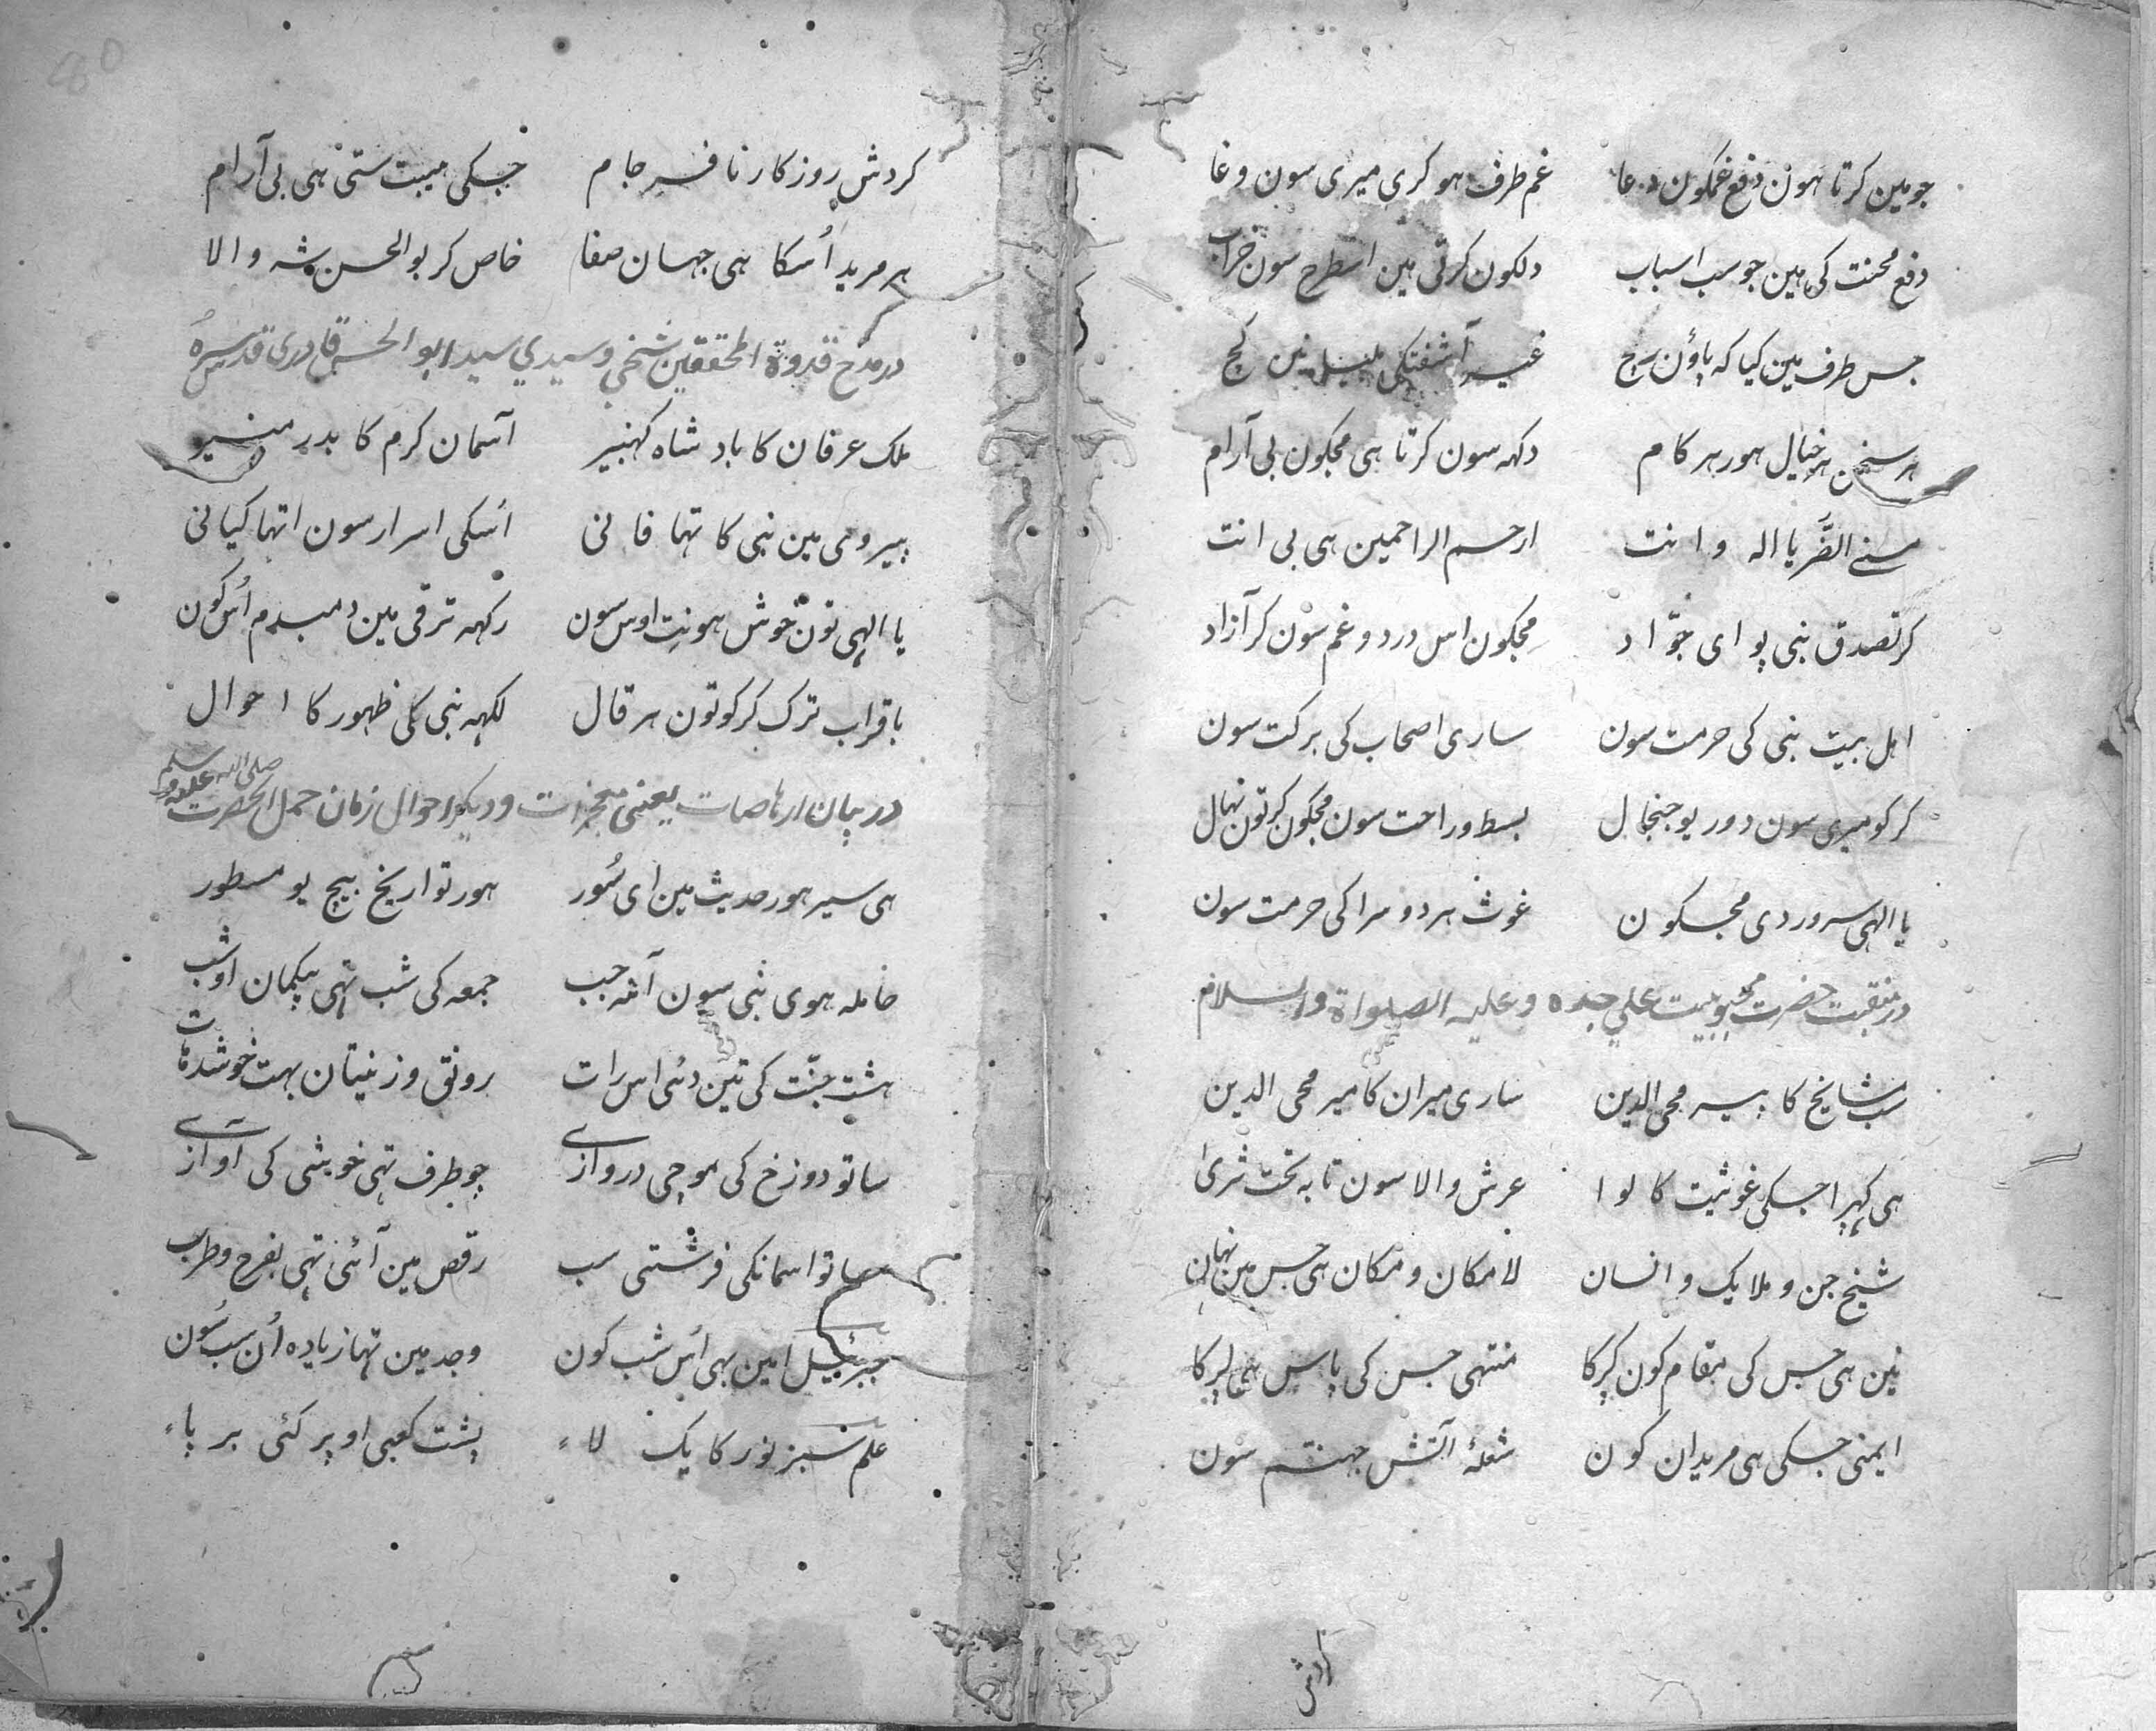 جو مین کرتا هون دفع غمکون دعا غم طرف هو کری میری سون وغا
دفع محنت کی هین جو سب اسباب دلکون کرتی هین اسطرح سون خراب
جس طرف مین کیا که پاؤن سج غیر آشفتکی نین کچ
هر سخن هر خیال هور هر کام دکهه سون کرتا هی مجکون بی آرام
مسنے الضّر یا اله وانت ارحم الراحمین هی بی انت
کر تصدق نبی پو ای جوّاد مجکون اس درد و غم سون کر آزاد
اهل بیت نبی کی حرمت سون ساری اصحاب کی برکت سون
کر کو میری سون دور یو جنجال بسط و راحت سون مجکون کر تون نهال
یا الهی سرور دی مجکون غوث هر دو سرا کی حرمت سون
در منقبت حضرت محبوبیت علی جده وعلیه الصلواة والسلام
سب مشایخ کا پیر محی الدین ساری میران کا میر محی الدین
هی کهڑا جسکی غوثیت کا لوا عرش والا سون تا به تحت ثری
شیخ جن و ملایک و انسان لامکان و مکان هی جس مین نهان
نین هی جس کی مقام کون پرکا منتهی جس کی پاس هی لرکا
ایمنی جسکی هی مریدان کون شعلهٔ آتش جهنم سون
کردش
کردش روزکار نافرجام جسکی هیبت ستی هی بی آرام
هر مرید اُسکا هی جهان صفا خاص کر بوالحسن شه والا
در مدح قدوة المحققین شیخی وسیدی سید ابو الحسن قادری قدس سره
ملک عرفان کا بادشاه کهنبیر آسمان کرم کا بدر منیر
پیروی مین نبی کا تها فانی اُسکی اسرار سون اتها کیانی
یا الهی تون خوش هو نِت اوس سون رکهه ترقی مین دمبدم اُس کون
باقر اب ترک کر کو تون هر قال لکهه نبی کی ظهور کا احوال
در بیان ارهاصات یعنی معجزات و دیکر احوال زمان حمل آنحضرت صلی الله علیه وسلم
هی سیر هور حدیث مین ای سُور هور تواریخ بیچ یو مسطور
حامله هوی نبی سون آمنه جب جمعه کی شب تهی بیکمان او شب
هشت جنّت کی تین دئی اس رات رونق و زینتان بهت خوشدهات
ساتو دوزخ کی موچی دروازے چوطرف تهی خوشی کی آوازے
ساتو اسمانکی فرشتی سب رقص مین آئی تهی بفرح و طرب
جبرئیل امین بهی اُس شب کون وجد مین تها زیاده اُن سب سُون
علم سبز نور کا یک لاء پشت کعبی اوپر کئی بر پاء